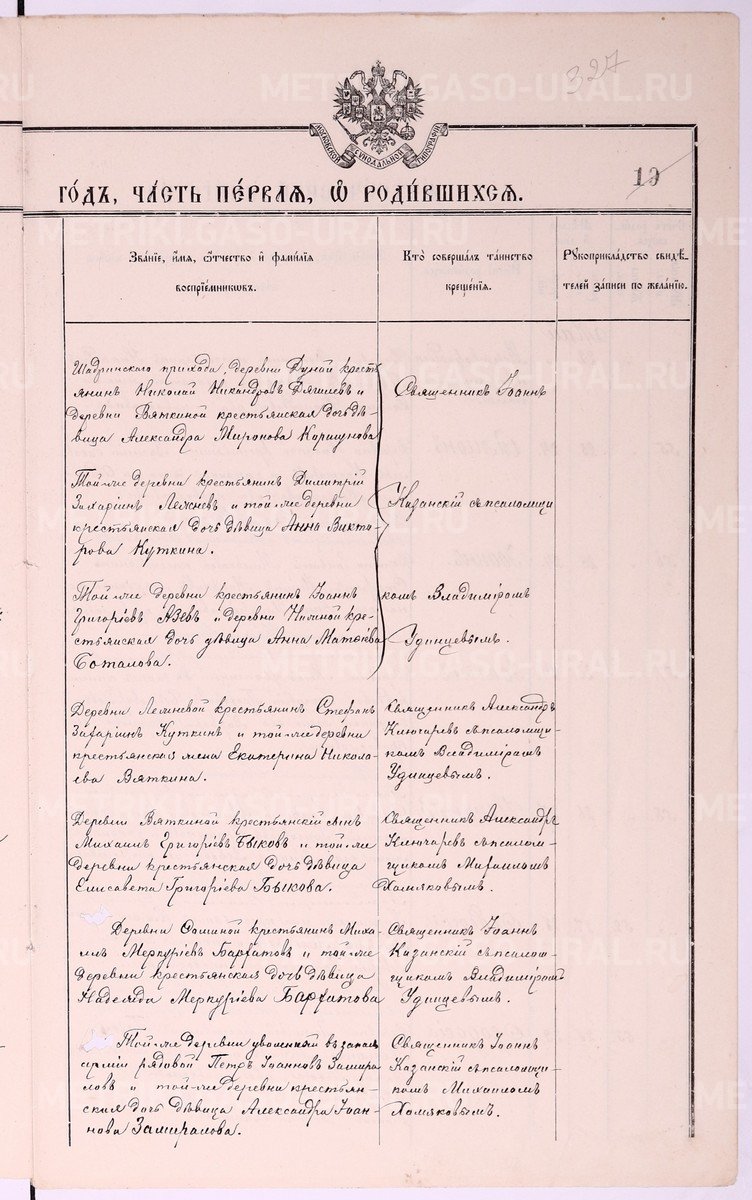 327
МОСКОВСКОЙ СѴНОДАЛЬНОЙ ТИПОГРАФІИ
19
ГОДЪ, ЧАСТЬ ПЕРВАЯ, Ѽ РОДИВШИХСЯ.
Званіе, имя, ѻтчество и фамилія
воспріемниковъ.
Кто совершалъ таинство
крещенія.
Рукоприкладство свидѣ-
телей записи по желанію.
Шадринскаго прихода, деревни Дунай кресть
янинъ Николай Никандровъ Дягилевъ и
деревни Вяткиной крестьянская дочь дѣ-
вица Александра Миронова Коршунова
Священникъ Іоаннъ
Той-же деревни крестьянинъ Димитрій
Захаріинъ Лежневъ и той-же деревни
крестьянская дочь дѣвица Анна Викто-
рова Куткина.
Казанскій съ псаломщи
Той-же деревни крестьянинъ Іоаннъ
Григоріевъ Азевъ и деревни кре-
стьянская дочь дѣвица Анна Матѳіева
Боталова.
комъ Владиміромъ
Удинцевымъ.
Деревни крестьянинъ Стефанъ
Захаріинъ Куткинъ и той-же деревни
крестьянская жена Екатерина Никола-
ева Вяткина.
Священникъ Александръ
Ключаревъ съ псаломщи-
комъ Владиміромъ
Удинцевымъ.
Деревни Вяткиной крестьянскій сынъ
Михаилъ Григоріевъ Быковъ и той-же
деревни крестьянская дочь дѣвица
Елисавета Григоріева Быкова.
Священникъ Александръ
Ключаревъ съ псалом-
щикомъ Михаиломъ
Хомяковымъ.
Деревни Соминой крестьянинъ Миха-
илъ Меркуріевъ Бархатовъ и той-же
деревни крестьянская дочь дѣвица
Надежда Меркуріева Бархатова
Священникъ Іоаннъ
Казанскій съ псалом-
щикомъ Владиміромъ
Удинцевымъ.
Той-же деревни уволенный въ запасъ
арміи рядовой Петръ Іоанновъ Замира-
ловъ и той-же деревни крестьян-
ская дочь дѣвица Александра Іоан-
нова Замиралова.
Священникъ Іоаннъ
Казанскій съ псаломщи-
комъ Михаиломъ
Хомяковымъ.
METRIKI.GASO-URAL.RU